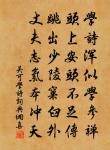 學詩渾似學參禪
頭上安頭不足傳
跳出少陵窠臼外
丈夫志氣本沖天
吳可學詩詞典網喜